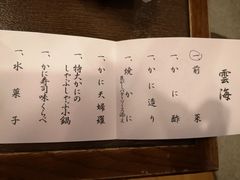 雲海
一、前菜
一、かに酢
一、かに造り
一、焼かに
一、かに天婦羅
一、特大かにの
しゃぶしゃぶ小鍋
一、かに寿司味くらべ
一、水菓子